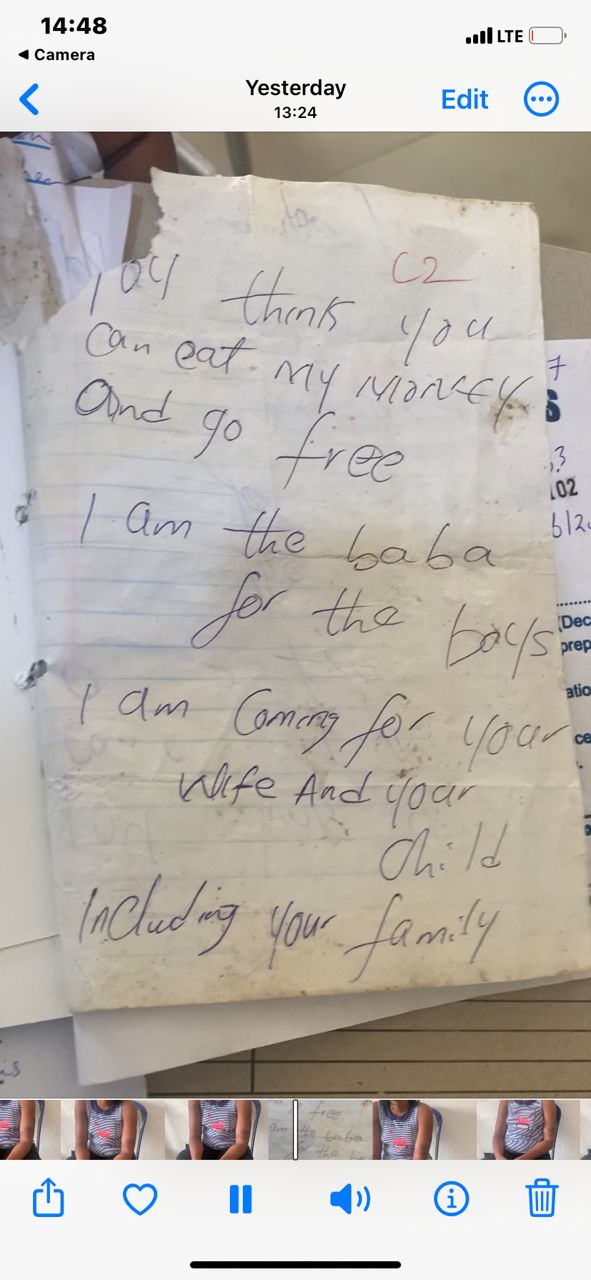 14:48
LTE
◀ Camera
Yesterday
13:24
Edit
C2
you think you
can eat my money
And go free
I am the baba
for the boys
I am Coming for your
wife And your
child
Including your family
7
S
,3
102
b12
(Dec
prep
atio
ce
free
am the baba
the